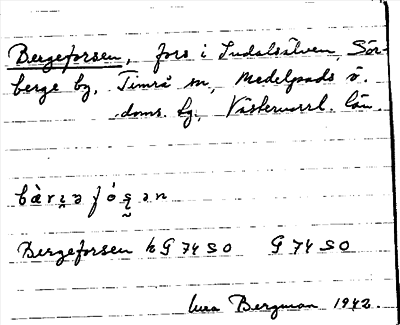 Bergeforsen, fors i Indalsälven, Sör-
berge by, Timrå sn, Medelpads ö.
doms. fg., Västernorrl. län.
Bergeforsen h G 74 S O G 74 S O
Bergman 1942.